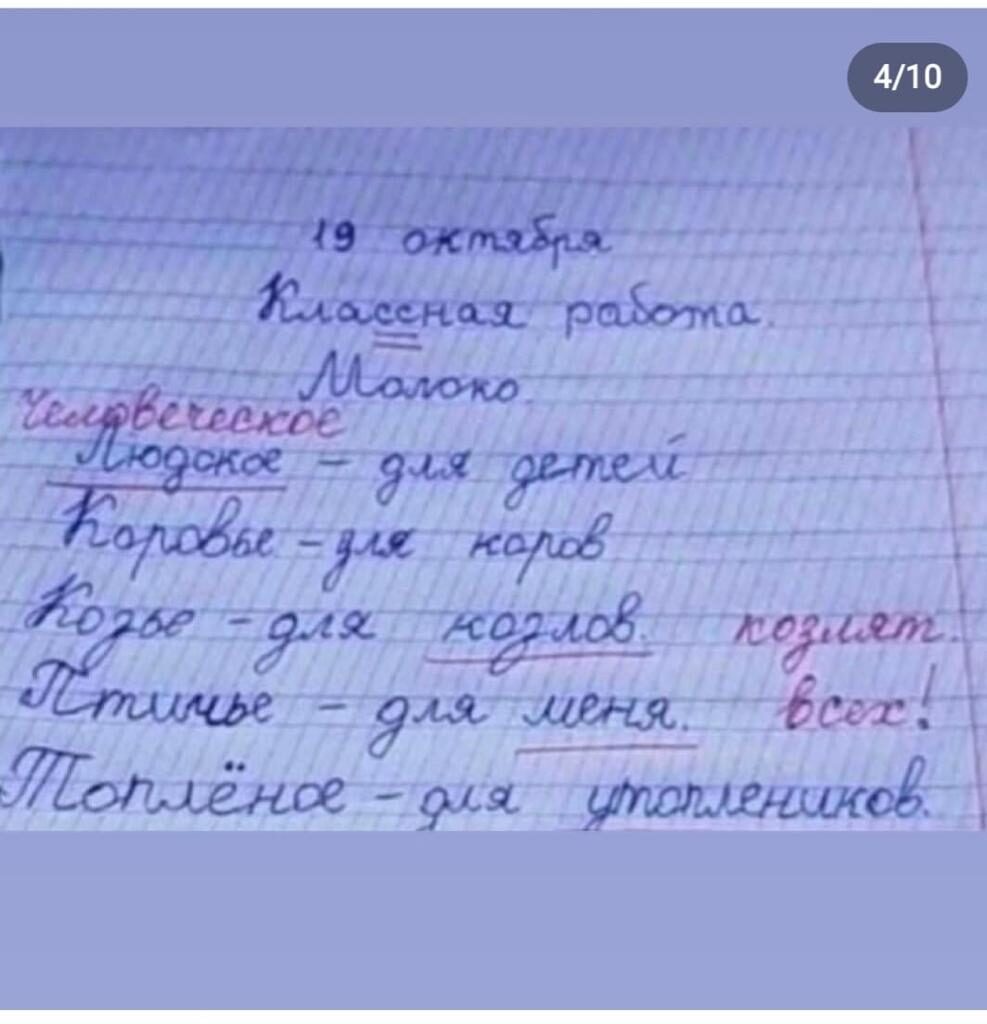 4/10
19 октября
Классная работа.
Молоко.
человеческое
Людское – для детей
Коровье – для коров
Козье – для козлов. козлят.
Птичье – для меня. всех!
Топлёное – для утоплеников.